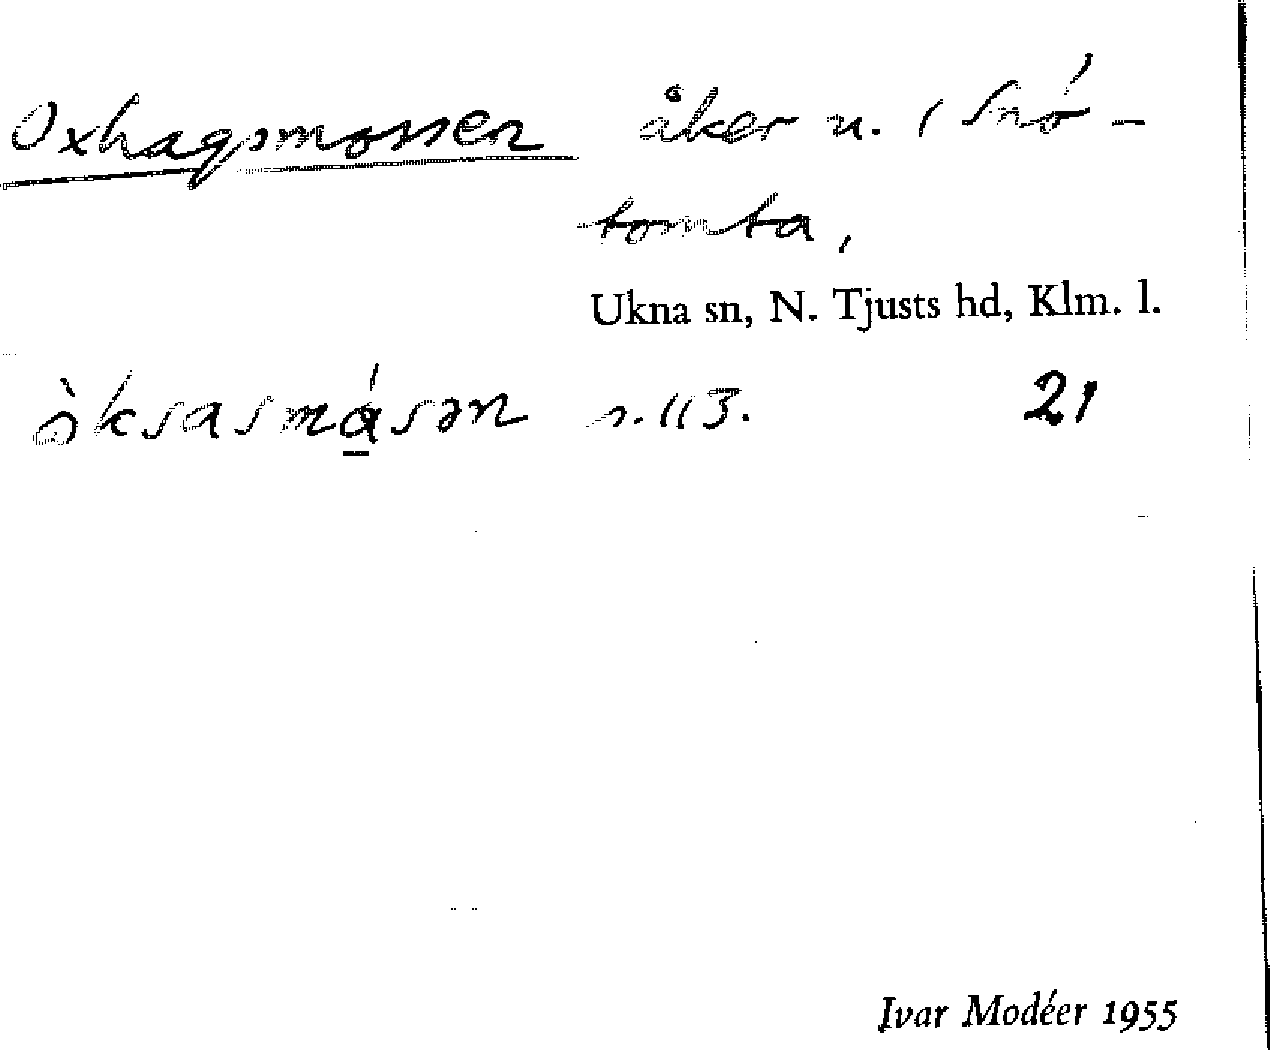 Oxhagsmossen åker u. 1 Snó-
tomta,
Ukna sn, N. Tjusts hd, Klm. l.
òksasmásən s. 113. 21
Ivar Modéer 1955